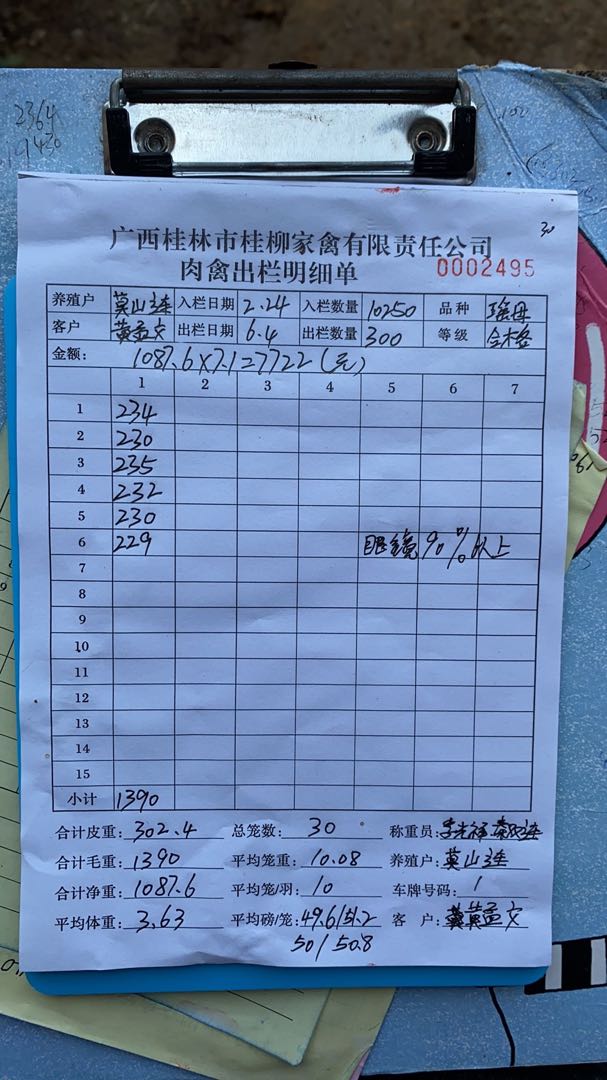 2364
1430
30
广西桂林市桂柳家禽有限责任公司
肉禽出栏明细单 0002495
养殖户 莫山连 入栏日期 2.24 入栏数量 10250 品种 瑶母
客户 黄孟文 出栏日期 6.4 出栏数量 300 等级 合格
金额: 1087.6×7.1=7722(元)
1 2 3 4 5 6 7
1 234
2 230
3 235
4 232
5 230
6 229 眼镜90%以上
7
8
9
10
11
12
13
14
15
小计 1390
合计皮重: 302.4 总笼数: 30 称重员:
合计毛重: 1390 平均笼重: 10.08 养殖户: 莫山连
合计净重: 1087.6 平均笼/羽: 10 车牌号码: 1
平均体重: 3.63 平均磅/笼: 49.6/51.2 客 户: 黄孟文
50/50.8